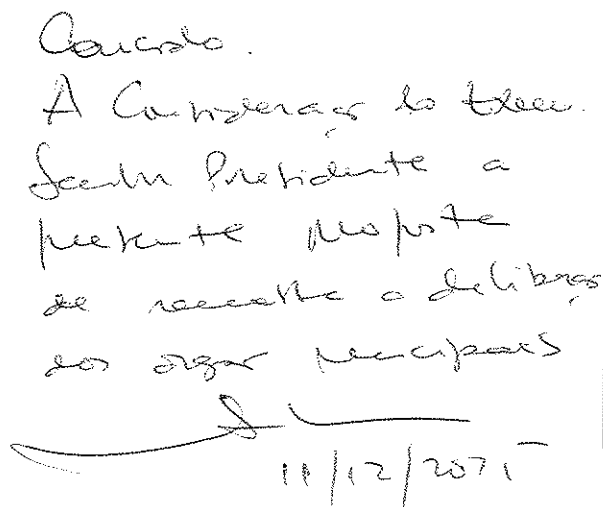 Concordo.
À Consideração do Exmo.
Senhor Presidente a
presente proposta
de remessa a deliberação
dos órgãos municipais
11/12/2025